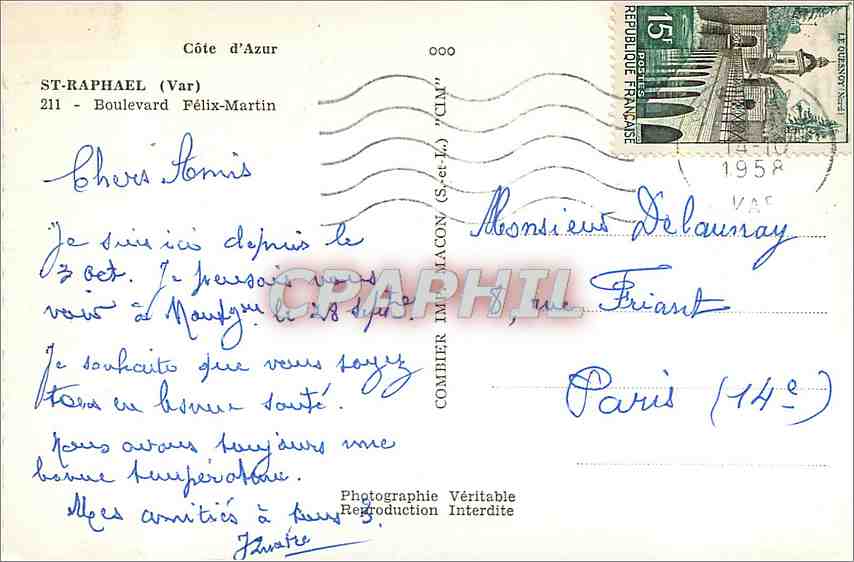 Côte d'Azur
ST-RAPHAEL (Var)
211 - Boulevard Félix-Martin
Chers Amis
Je suis ici depuis le
3 oct. Je pensais vous
voir à le 28 septbre.
Je souhaite que vous soyez
tous en bonne santé.
Nous avons toujours une
bonne température.
Mes amitiés à tous 3.
ooo
COMBIER IMP. MACON (S.-et-L.) "CIM"
Photographie Véritable
Reproduction Interdite
15F
POSTES
REPUBLIQUE FRANÇAISE
LE QUESNOY (Nord)
14-10
1958
VAR
Monsieur Delaunay
8, rue Friant
Paris (14e)
CPAPHIL